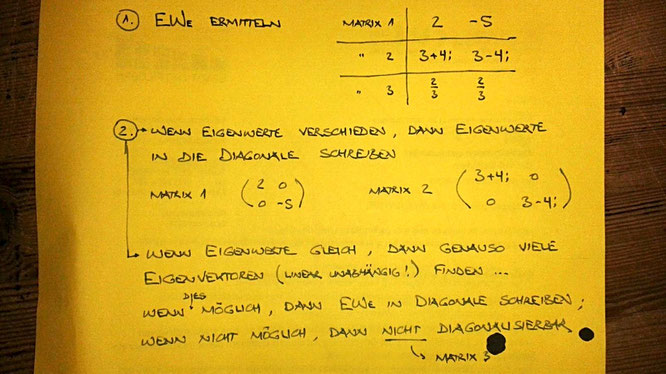 1. EWe ERMITTELN
MATRIX 1 2 -5
" 2 3+4i 3-4i
" 3 2/3 2/3
2. → WENN EIGENWERTE VERSCHIEDEN, DANN EIGENWERTE
IN DIE DIAGONALE SCHREIBEN
MATRIX 1 (2 0
0 -5)
MATRIX 2 (3+4i 0
0 3-4i)
→ WENN EIGENWERTE GLEICH, DANN GENAUSO VIELE
EIGENVEKTOREN (LINEAR UNABHÄNGIG!) FINDEN ...
WENN DIES MÖGLICH, DANN EWe IN DIAGONALE SCHREIBEN;
WENN NICHT MÖGLICH, DANN NICHT DIAGONALISIERBAR
↳ MATRIX 3